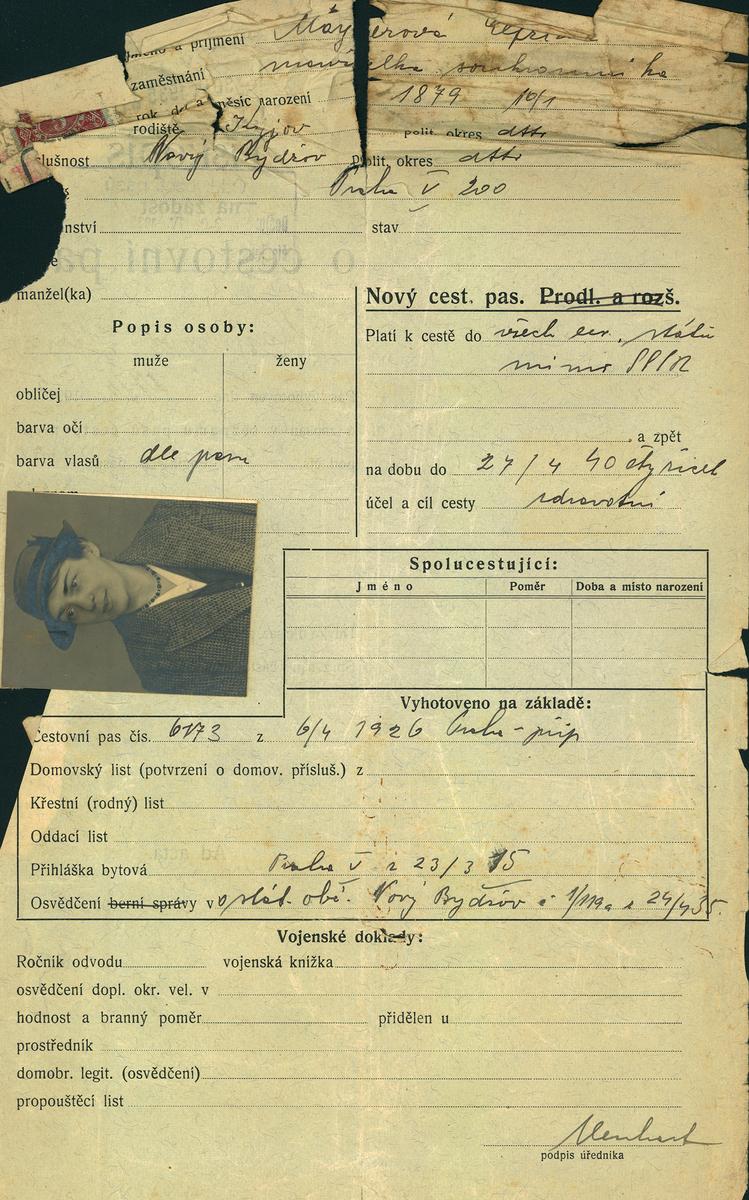 jméno a příjmení
zaměstnání
rok, den a měsíc narození 1879 10/1
rodiště Kyjov polit. okres dtto
slušnost Nový Bydžov Polit. okres dtto
Praha V 200
nství stav
manžel(ka)
Nový cest. pas. Prodl. a rozš.
Popis osoby:
muže ženy
obličej
barva očí
barva vlasů dle pasu
Platí k cestě do všech eur. států
mimo SSSR
a zpět
na dobu do 27/4 40 čtyřicet
účel a cíl cesty zdravotní
Spolucestující:
Jméno Poměr Doba a místo narození
Vyhotoveno na základě:
Cestovní pas čís. 6173 z 6/4 1926 Praha
Domovský list (potvrzení o domov. přísluš.) z
Křestní (rodný) list
Oddací list
Přihláška bytová Praha V z 23/3 15
Osvědčení berní správy v o stát. obč. Nový Bydžov 24/4 35.
Vojenské doklady:
Ročník odvodu vojenská knížka
osvědčení dopl. okr. vel. v
hodnost a branný poměr přidělen u
prostředník
domobr. legit. (osvědčení)
propouštěcí list
podpis úředníka